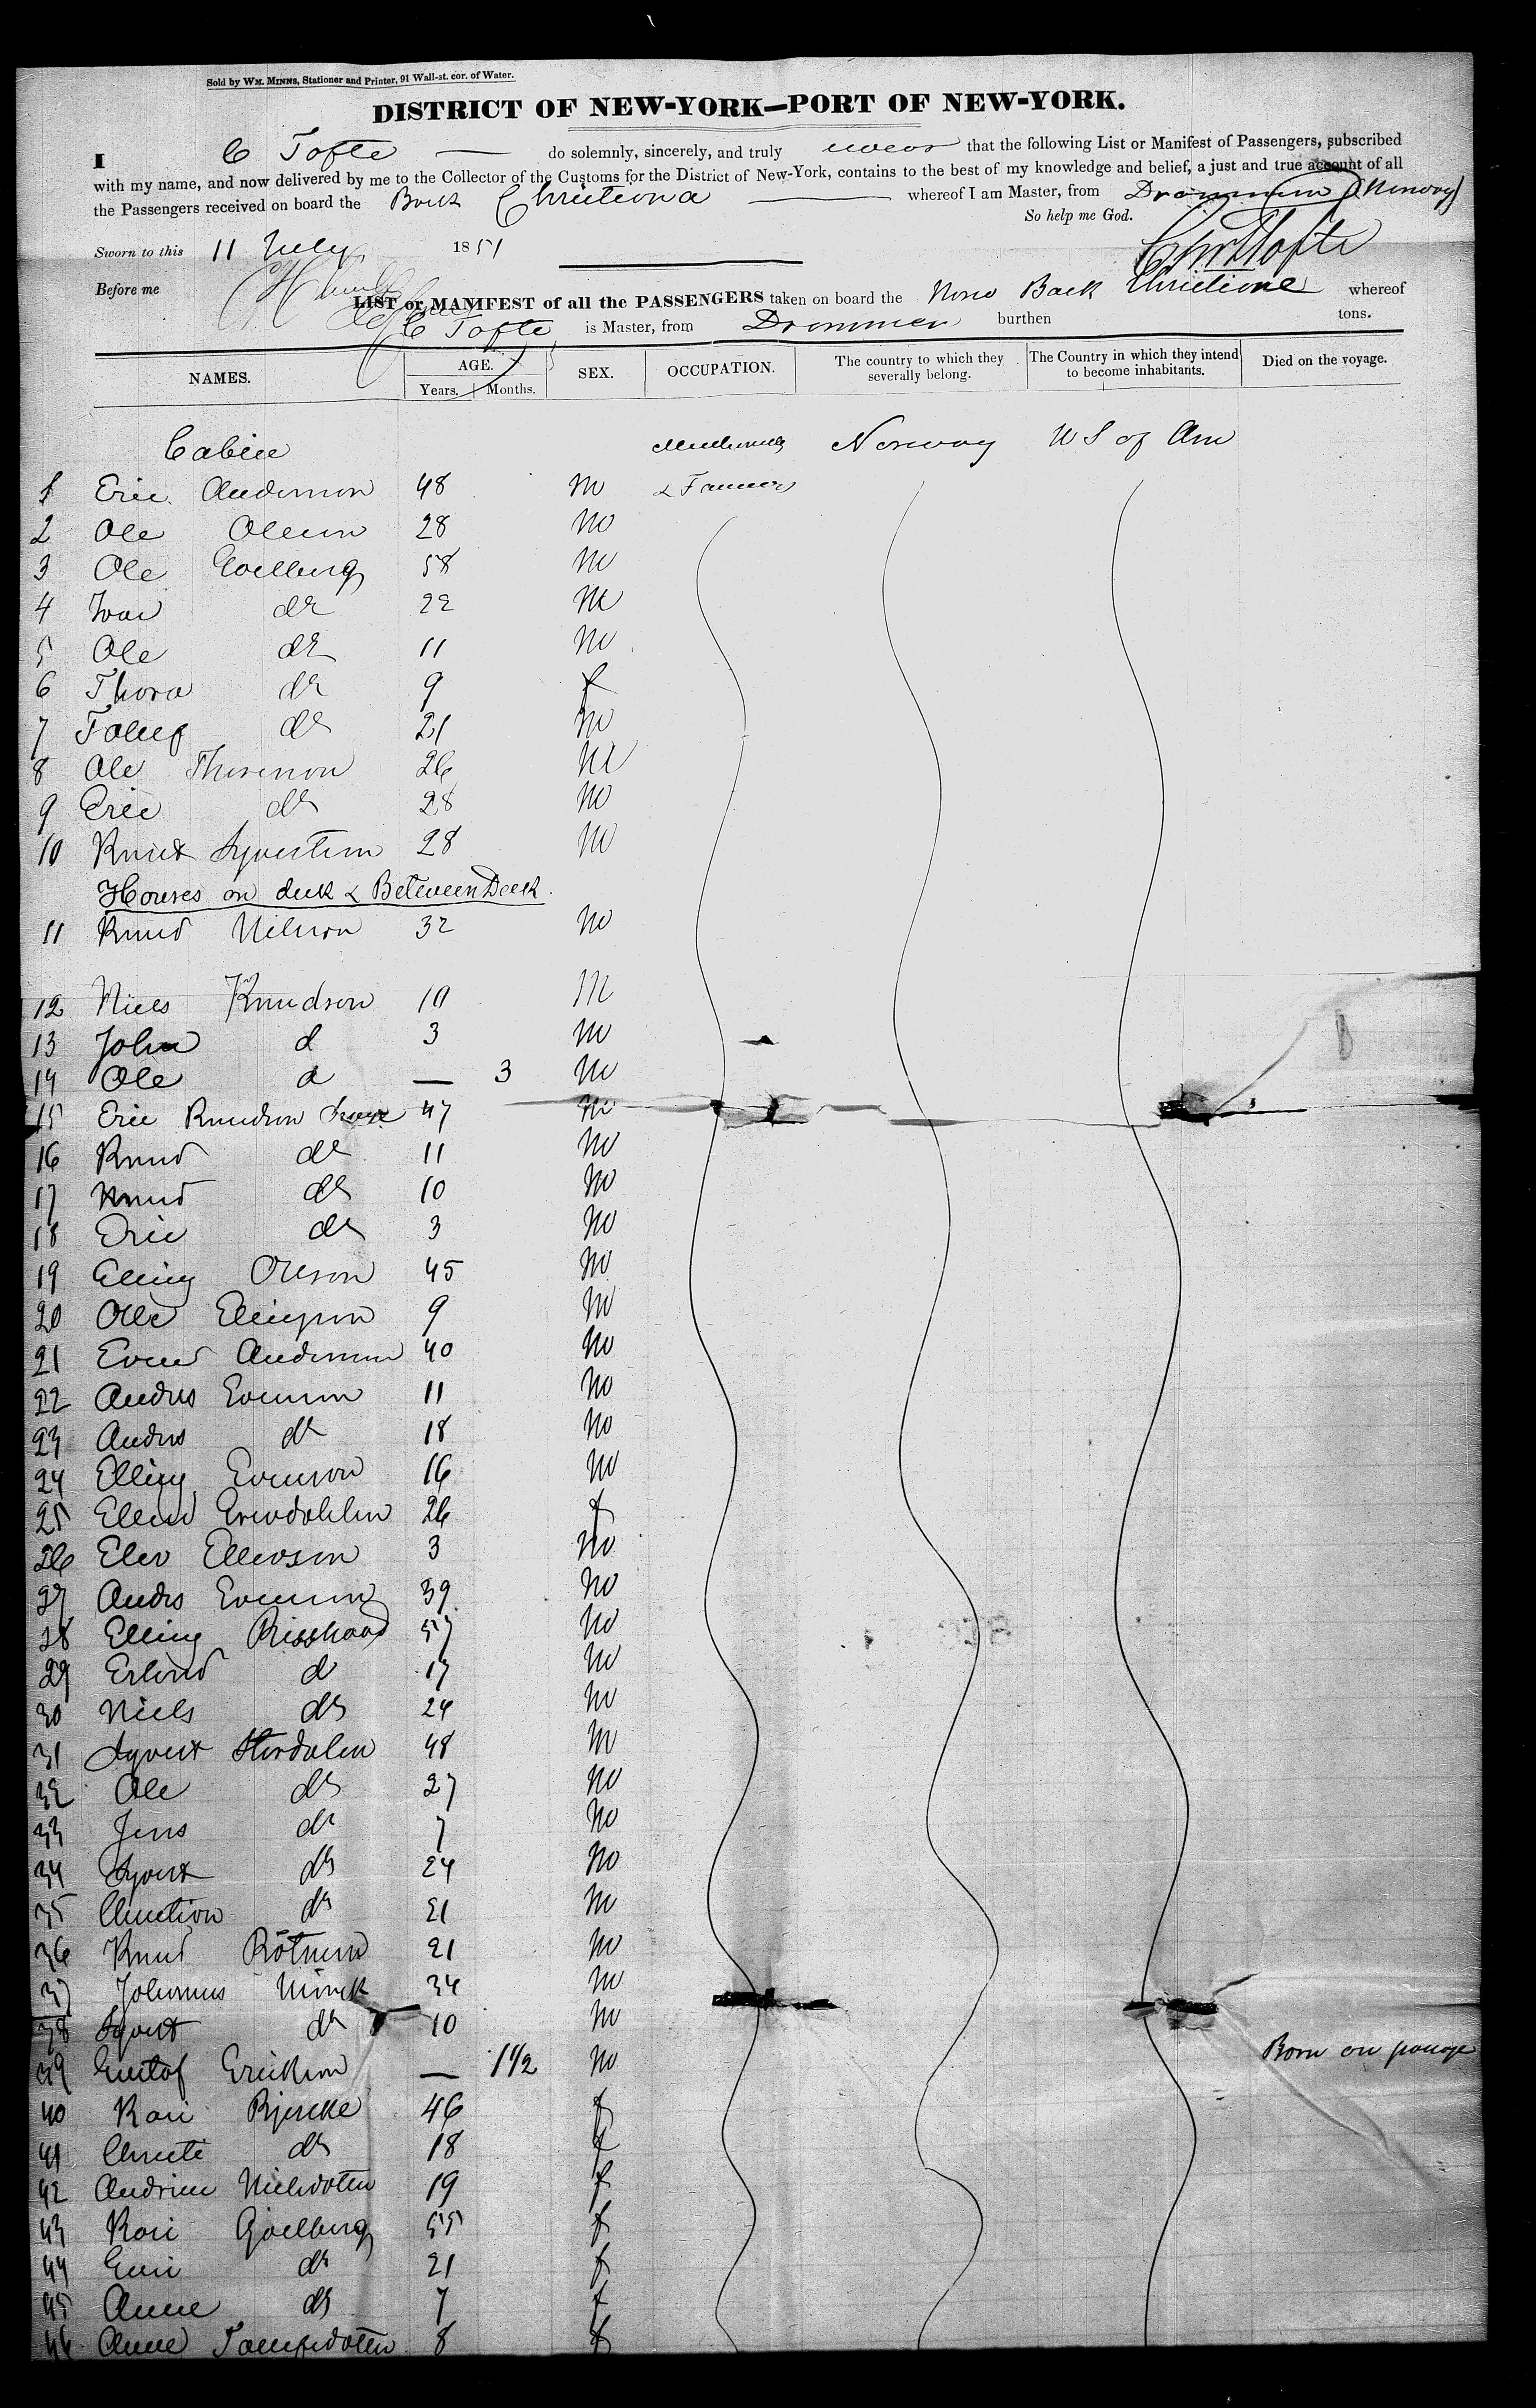 Sold by WM. MINNS, Stationer and Printer, 91 Wall-st. cor. of Water.
DISTRICT OF NEW-YORK—PORT OF NEW-YORK.
I C Tofte — do solemnly, sincerely, and truly swear that the following List or Manifest of Passengers, subscribed
with my name, and now delivered by me to the Collector of the Customs for the District of New-York, contains to the best of my knowledge and belief, a just and true account of all
the Passengers received on board the Bark Christiana — whereof I am Master, from Drammen (Norway)
So help me God.
Sworn to this 11 July 1851
Before me
LIST or MANIFEST of all the PASSENGERS taken on board the Norw Bark Christiane whereof
C Tofte is Master, from Drammen burthen tons.
NAMES. AGE. Years. Months. SEX. OCCUPATION. The country to which they severally belong. The Country in which they intend to become inhabitants. Died on the voyage.
Cabin Norway U S of Am
1 Eric Anderson 48 m & Farmers
2 Ole Oleson 28 m
3 Ole Goelberg 58 m
4 Ivar do 22 m
5 Ole do 11 m
6 Thora do 9 f
7 do 21 m
8 Ole Thoreson 26 m
9 Eric do 28 m
10 Knut Syvertsen 28 m
Houses on deck & Between Deck.
11 Knud Nilson 32 m
12 Niels Knudson 10 m
13 John d 3 m
14 Ole d — 3 m
15 Eric Knudson 47 m
16 Knud do 11 m
17 Knud do 10 m
18 Eric do 3 m
19 Elling Oleson 45 m
20 Ole Ellingson 9 m
21 Even Anderson 40 m
22 Andres Evenson 11 m
23 Andres do 18 m
24 Elling Evenson 16 m
25 Ellen 26 f
26 Elev Ellevson 3 m
27 Andrs Evenson 39 m
28 Elling 57 m
29 Erlend d 17 m
30 Niels do 24 m
31 Syvert Stordalen 48 m
32 Ole do 27 m
33 Jens do 7 m
34 Syvert do 24 m
35 Christian do 21 m
36 Knud 21 m
37 Johannes 34 m
38 Syvert do 10 m
39 Gustof Erickson — 1 1/2 m Born on passage
40 Kari Bjercke 46 f
41 Christi do 18 f
42 Andrine Nielsdotter 19 f
43 Kari Gjoelberg 55 f
44 Guri do 21 f
45 Anne do 7 f
46 Anne 8 f